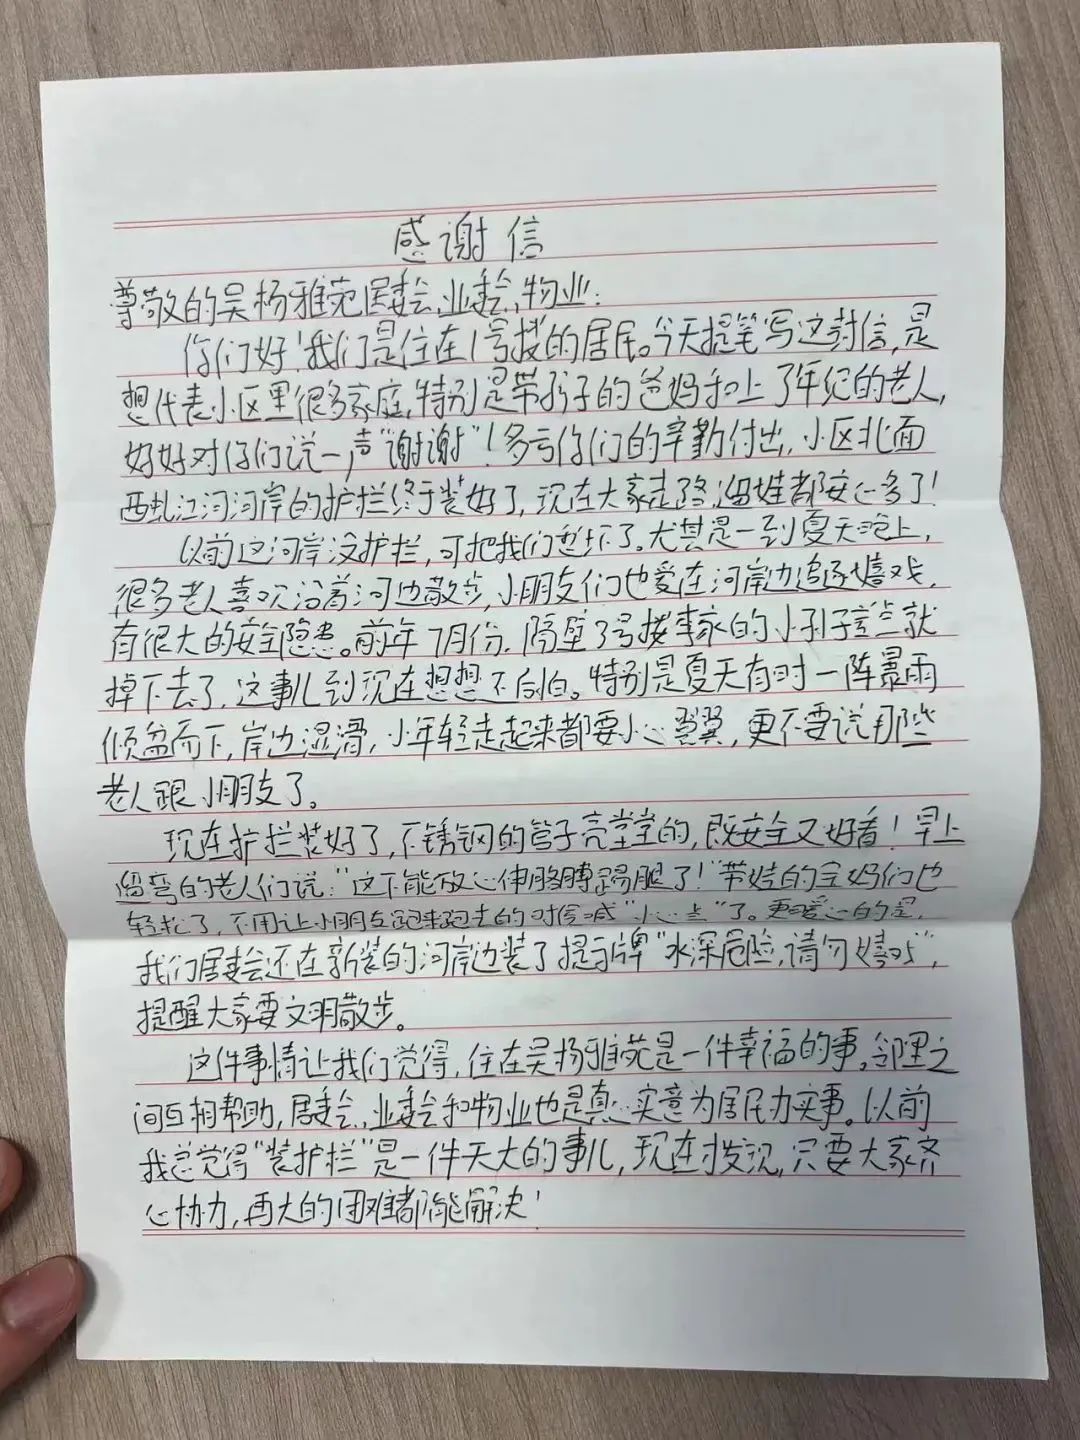 感谢信
尊敬的吴杨雅苑居委会、业委会、物业:
你们好!我们是住在1号楼的居民。今天提笔写这封信,是
想代表小区里很多家庭,特别是带孩子的爸妈和上了年纪的老人,
好好对你们说一声“谢谢”!多亏你们的辛勤付出,小区北面
西虬江河河岸的护栏终于装好了,现在大家走路、遛娃都安心多了!
以前这河岸没护栏,可把我们愁坏了。尤其是一到夏天晚上,
很多老人喜欢沿着河边散步,小朋友们也爱在河岸边追逐嬉戏,
有很大的安全隐患。前年7月份,隔壁3号楼李家的小孙子差点就
掉下去了,这事儿到现在想想还后怕。特别是夏天有时一阵暴雨
倾盆而下,岸边湿滑,小年轻走起来都要小心翼翼,更不要说那些
老人跟小朋友了。
现在护栏装好了,不锈钢的管子亮堂堂的,既安全又好看!早上
遛弯的老人们说:“这下能放心伸胳膊踢腿了!”带娃的宝妈们也
轻松了,不用让小朋友跑来跑去的时候喊“小心点”了。更暖心的是,
我们居委会还在新装的河岸边装了提示牌“水深危险,请勿嬉戏”,
提醒大家要文明散步。
这件事情让我们觉得,住在吴杨雅苑是一件幸福的事。邻里之
间互相帮助,居委会、业委会和物业也是真心实意为居民办实事。以前
我总觉得“装护栏”是一件天大的事儿,现在才发现,只要大家齐
心协力,再大的困难都能解决!